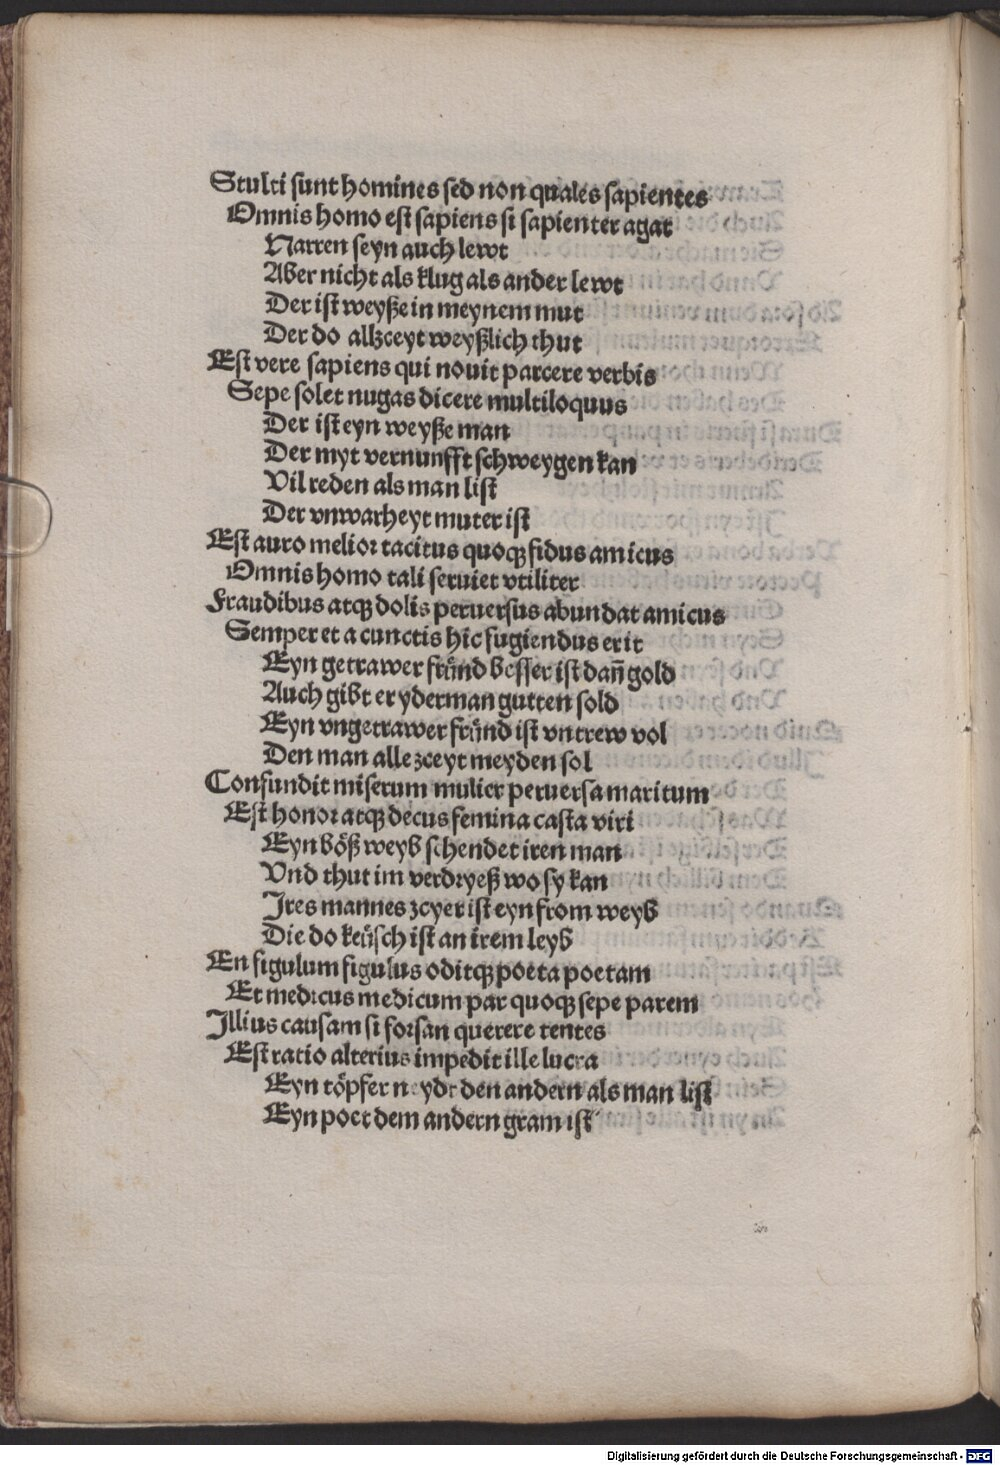 Stulti sunt homines sed non quales sapientes
Omnis homo est sapiens si sapienter agat
Narren seyn auch lewt
Aber nicht als klug als ander lewt
Der ist weyße in meynem mut
Der do allzceyt weyßlich thut
Est vere sapiens qui nouit parcere verbis
Sepe solet nugas dicere multiloquus
Der ist eyn weyße man
Der myt vernunfft schweygen kan
Vil reden als man list
Der vnwarheyt muter ist
Est auro melior tacitus quoqꝫ fidus amicus
Omnis homo tali seruiet vtiliter
Fraudibus atqꝫ dolis peruersus abundat amicus
Semper et a cunctis hic fugiendus erit
Eyn getrawer fründ besser ist dañ gold
Auch gibt er yderman gutten sold
Eyn vngetrawer fründ ist vntrew vol
Den man alle zceyt meyden sol
Confundit miserum mulier peruersa maritum
Est honor atqꝫ decus femina casta viri
Eyn böß weyb schendet iren man
Vnd thut im verdryeß wo sy kan
Ires mannes zcyer ist eyn from weyb
Die do keüsch ist an irem leyb
En figulum figulus oditqꝫ poeta poetam
Et medicus medicum par quoqꝫ sepe parem
Illius causam si forsan querere tentes
Est ratio alterius impedit ille lucra
Eyn töpfer neydt den andern als man list
Eyn poet dem andern gram ist
Digitalisierung gefördert durch die Deutsche Forschungsgemeinschaft - DFG